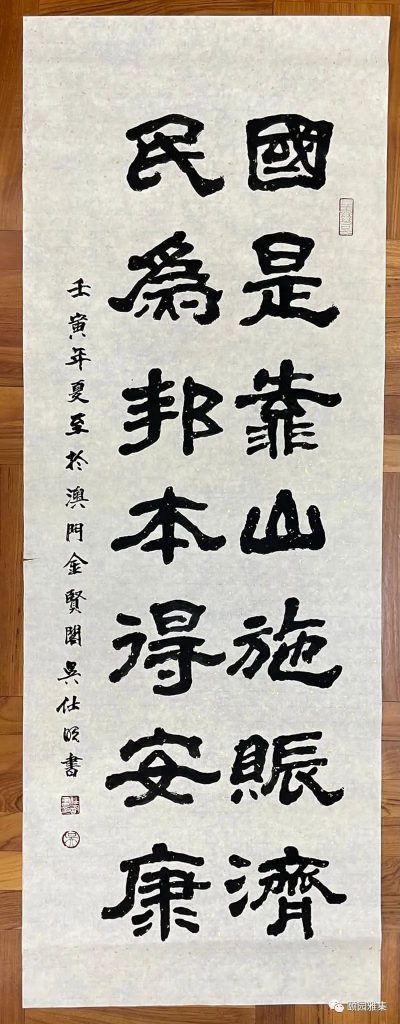 國是靠山施賑濟
民爲邦本得安康
壬寅年夏至於澳門金賢閣吳仕明書
頤园雅集